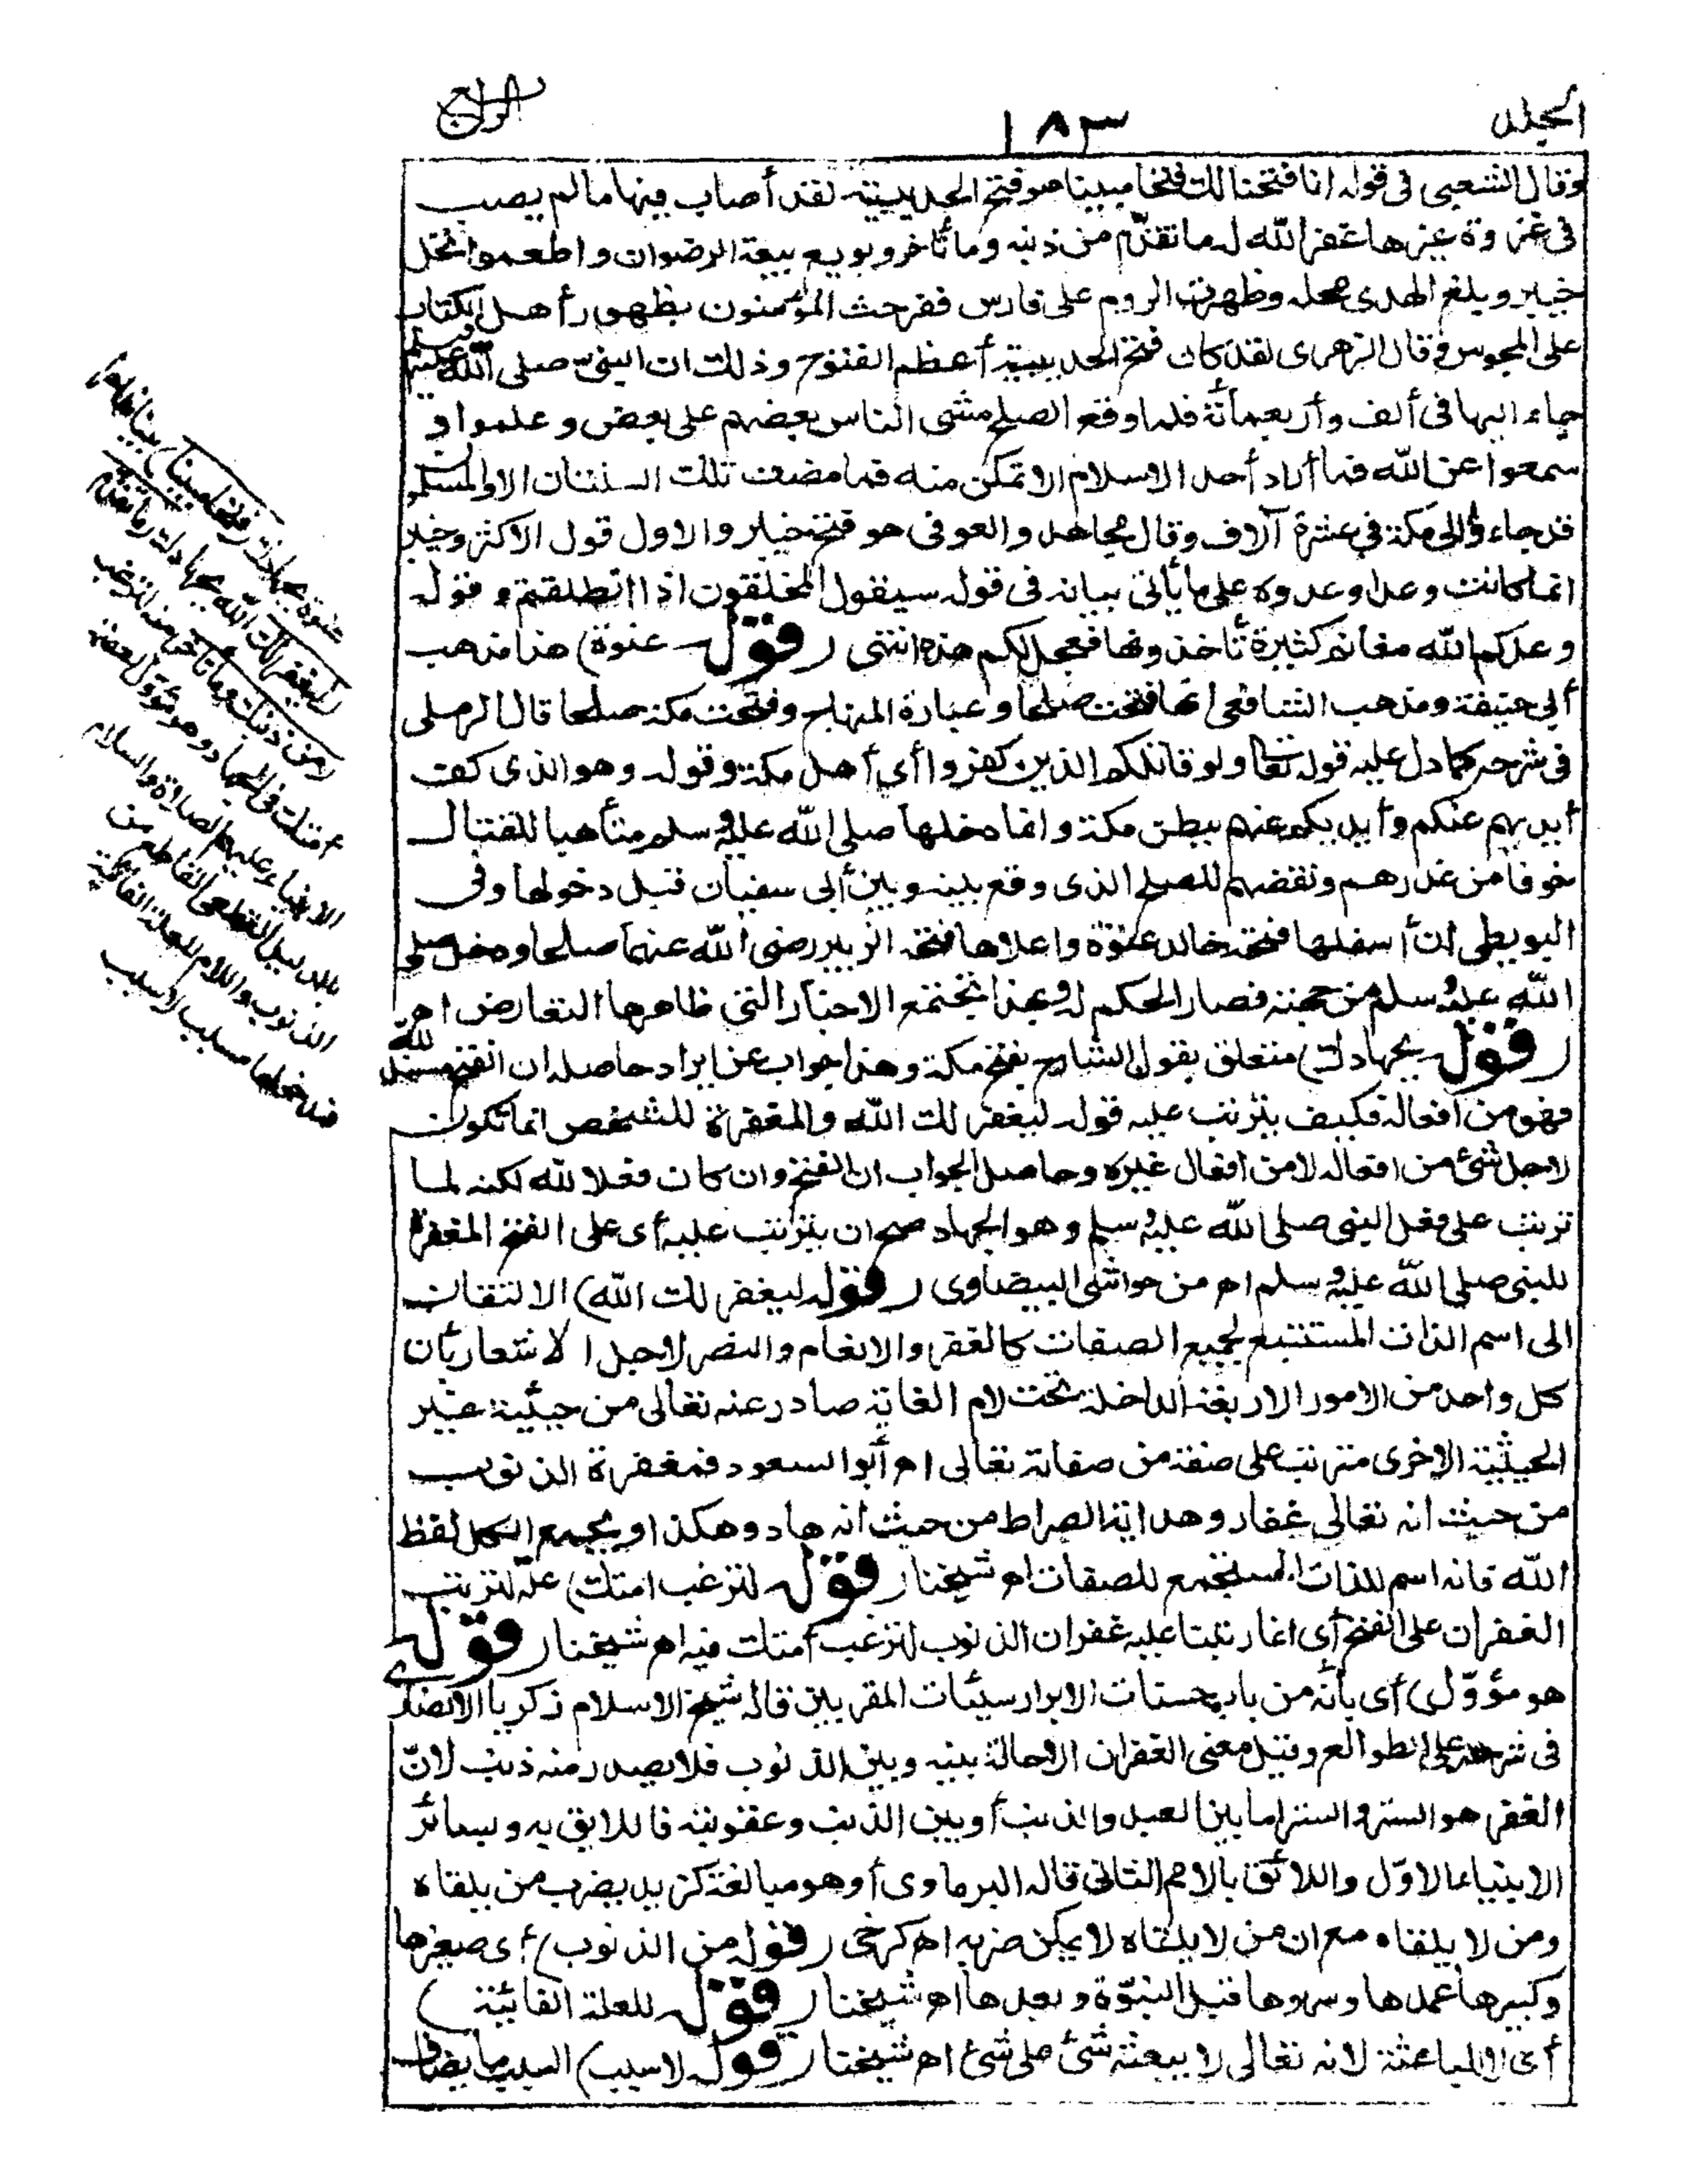 الجلد
١٨٣
الرابع
وقال الشعبي في قوله انا فتحنا لك فتحا مبينا هو فتح الحديبية لقد أصاب فيها ما لم يصب
في غزوة غيرها غفر الله له ما تقدّم من ذنبه وما تأخر وبويع بيعة الرضوان واطعموا نخل
خيبر وبلغ الهدى محله وظهرت الروم على فارس ففرحت المؤمنون بظهور أهل الكتاب
على المجوس وقال الزهرى لقد كان فتح الحديبية أعظم الفتوح وذلك ان النبيّ صلى الله عليه وسلم
جاء اليها في ألف وأربعمائة فلما وقع الصلح مشى الناس بعضهم على بعض وعلموا و
سمعوا عن الله فما أراد أحد الاسلام الا تمكن منه فما مضت تلك السنتان الا والمسلمو
قد جاءوا الى مكة في عشرة آلاف وقال مجاهد والعوفى هو فتح خيبر والاول قول الاكثر وخيبر
انما كانت وعدا وعدوه على ما يأتي بيانه في قوله سيقول المخلفون اذا انطلقتم وقوله
وعدكم الله مغانم كثيرة تأخذونها فعجل لكم هذه انتهى (قوله عنوة) هذا مذهب
أبي حنيفة ومذهب الشافعى انها فتحت صلحا وعبارة المنهاج وفتحت مكة صلحا قال الرملى
في شرحه كما دل عليه قوله تعالى ولو قاتلكم الذين كفروا أي أهل مكة وقوله وهو الذى كف
أيديهم عنكم وأيديكم عنهم ببطن مكة وانما دخلها صلى الله عليه وسلم متأهبا للقتال
خوفا من غدرهم ونقضهم للصلح الذى وقع بينه وبين أبى سفيان قبل دخولها وفى
البويطى ان أسفلها فتحه خالد عنوة واعلاها فتحه الزبير رضى الله عنهما صلحا ودخل صلى
الله عليه وسلم من جهته فصار الحكم له وبهذا تجتمع الاخبار التى ظاهرها التعارض اهـ
(قوله بجهادك) متعلق بقول الشارح بفتح مكة وهذا جواب عن ايراد حاصله ان الفتح مسند لله
فهو من أفعاله فكيف يترتب عليه قوله ليغفر لك الله والمغفرة للشخص انما تكون
لاجل شئ من افعاله لا من افعال غيره وحاصل الجواب ان الفتح وان كان فعلا لله لكنه لما
ترتب على فعل النبى صلى الله عليه وسلم وهو الجهاد صح ان يترتب عليه أى على الفتح المغفرة
للنبى صلى الله عليه وسلم اهـ من حواشى البيضاوى (قوله ليغفر لك الله) الالتفات
الى اسم الذات المستتبع لجميع الصفات كالغفر والانعام والنصر لاجل الاشعار بأن
كل واحد من الامور الاربعة الداخلة تحت لام الغاية صادر عنه تعالى من حيثية غير
الحيثية الاخرى مترتب على صفة من صفاته تعالى اهـ أبو السعود فمغفرة الذنوب
من حيث انه تعالى غفار وهداية الصراط من حيث انه هاد وهكذا ويجمع الكل لفظ
الله فانه اسم للذات المستجمع للصفات اهـ شيخنا (قوله لترغب امتك) علة لترتب
الغفران على الفتح أى انما رتبنا عليه غفران الذنوب لترغب أمتك فيه اهـ شيخنا (قوله
هو مؤوّل) أى بأنه من باب حسنات الابرار سيئات المقربين قاله شيخ الاسلام زكريا الانصارى
فى شرحه على الطوالع وقيل معنى الغفران الاحالة بينه وبين الذنوب فلا يصدر منه ذنب لانّ
الغفر هو الستر والستر اما بين العبد والذنب أو بين الذنب وعقوبته فاللائق به وبسائر
الانبياء الاوّل واللائق بالامم الثانى قاله البرماوى أو هو مبالغة كزيد يضرب من يلقاه
ومن لا يلقاه مع ان من لا يلقاه لا يمكن ضربه اهـ كرخى (قوله من الذنوب) أى صغيرها
وكبيرها عمدها وسهوها قبل النبوّة وبعدها اهـ شيخنا (قوله للعلة الغائية)
أى لا الباعثة لانه تعالى لا يبعثه شئ على شئ اهـ شيخنا (قوله لا سبب) السبب ما يضاف
عنوة بجهادك (فتحا مبينا) بينا ظاهرا
(ليغفر لك الله) بجهادك (ما تقدم
من ذنبك وما تأخر) منه لترغب
أمتك فى الجهاد وهو مؤوّل لعصمة
الانبياء عليهم الصلاة والسلام
بالدليل العقلى القاطع من
الذنوب واللام للعلة الغائية
فمدخولها مسبب لا سبب